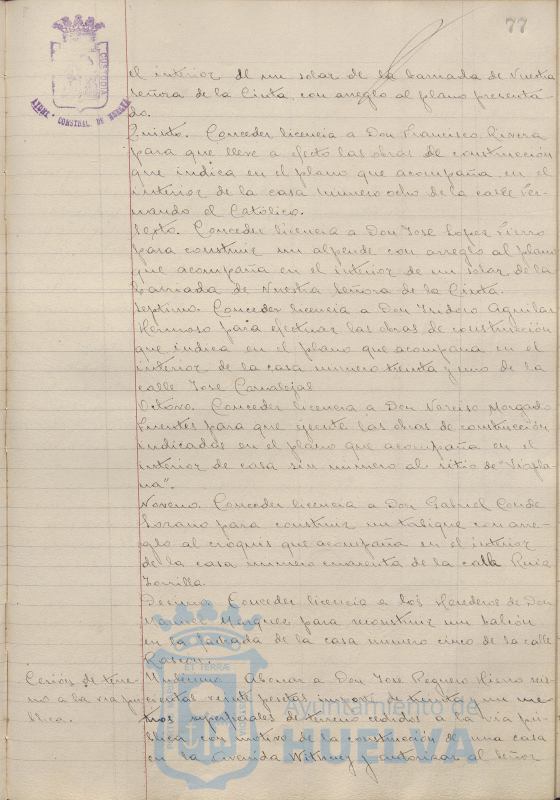 77
CUSTODIA
AYUNT. CONSTNAL. DE HUELVA
el interior de un solar de la barriada de Nuestra
Señora de la Cinta, con arreglo al plano presenta-
do.
Quinto. Conceder licencia a Don Francisco Rivera
para que lleve a efecto las obras de construcción
que indica en el plano que acompaña en el
interior de la casa numero ocho de la calle Fer-
nando el Católico.
Septo. Conceder licencia a Don Jose Lopez Fierro
para construir un alpende con arreglo al plano
que acompaña en el interior de un solar de la
barriada de Nuestra Señora de la Cinta.
Septimo. Conceder licencia a Don Isidoro Aguilar
Hermoso para efectuar las obras de construcción
que indica en el plano que acompaña en el
interior de la casa numero treinta y uno de la
calle Jose Canalejas
Octavo. Conceder licencia a Don Narciso Morgado
Fuentes para que ejecute las obras de construcción
indicadas en el plano que acompaña en el
interior de casa sin numero al sitio de "Viapla-
na".
Noveno. Conceder licencia a Don Gabriel Conde
Lozano para construir un tabique con arre-
glo al croquis que acompaña en el interior
de la casa numero cuarenta de la calle Ruiz
Zorrilla.
Decimo. Conceder licencia a los Herederos de Don
Manuel Marquez para reconstruir un balcón
en la fachada de la casa numero cinco de la calle
Rascon.
Cesión de terre-
no a la via pu-
blica.
Undécimo. Abonar a Don Jose Peguero Hierro seis-
cientas veinte pesetas importe de treinta y un me-
tros superficiales de terreno cedidos a la via pu-
blica con motivo de la construcción de una casa
en la Avenida Withney y autorizar al Señor
Ayuntamiento de
HUELVA